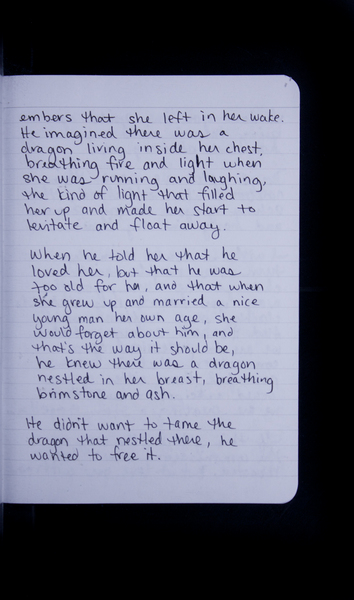 embers that she left in her wake.
He imagined there was a
dragon living inside her chest,
breathing fire and light when
she was running and laughing,
the kind of light that filled
her up and made her start to
levitate and float away.
When he told her that he
loved her, but that he was
too old for her, and that when
she grew up and married a nice
young man her own age, she
would forget about him, and
that's the way it should be,
he knew there was a dragon
nestled in her breast, breathing
brimstone and ash.
He didn't want to tame the
dragon that nestled there, he
wanted to free it.